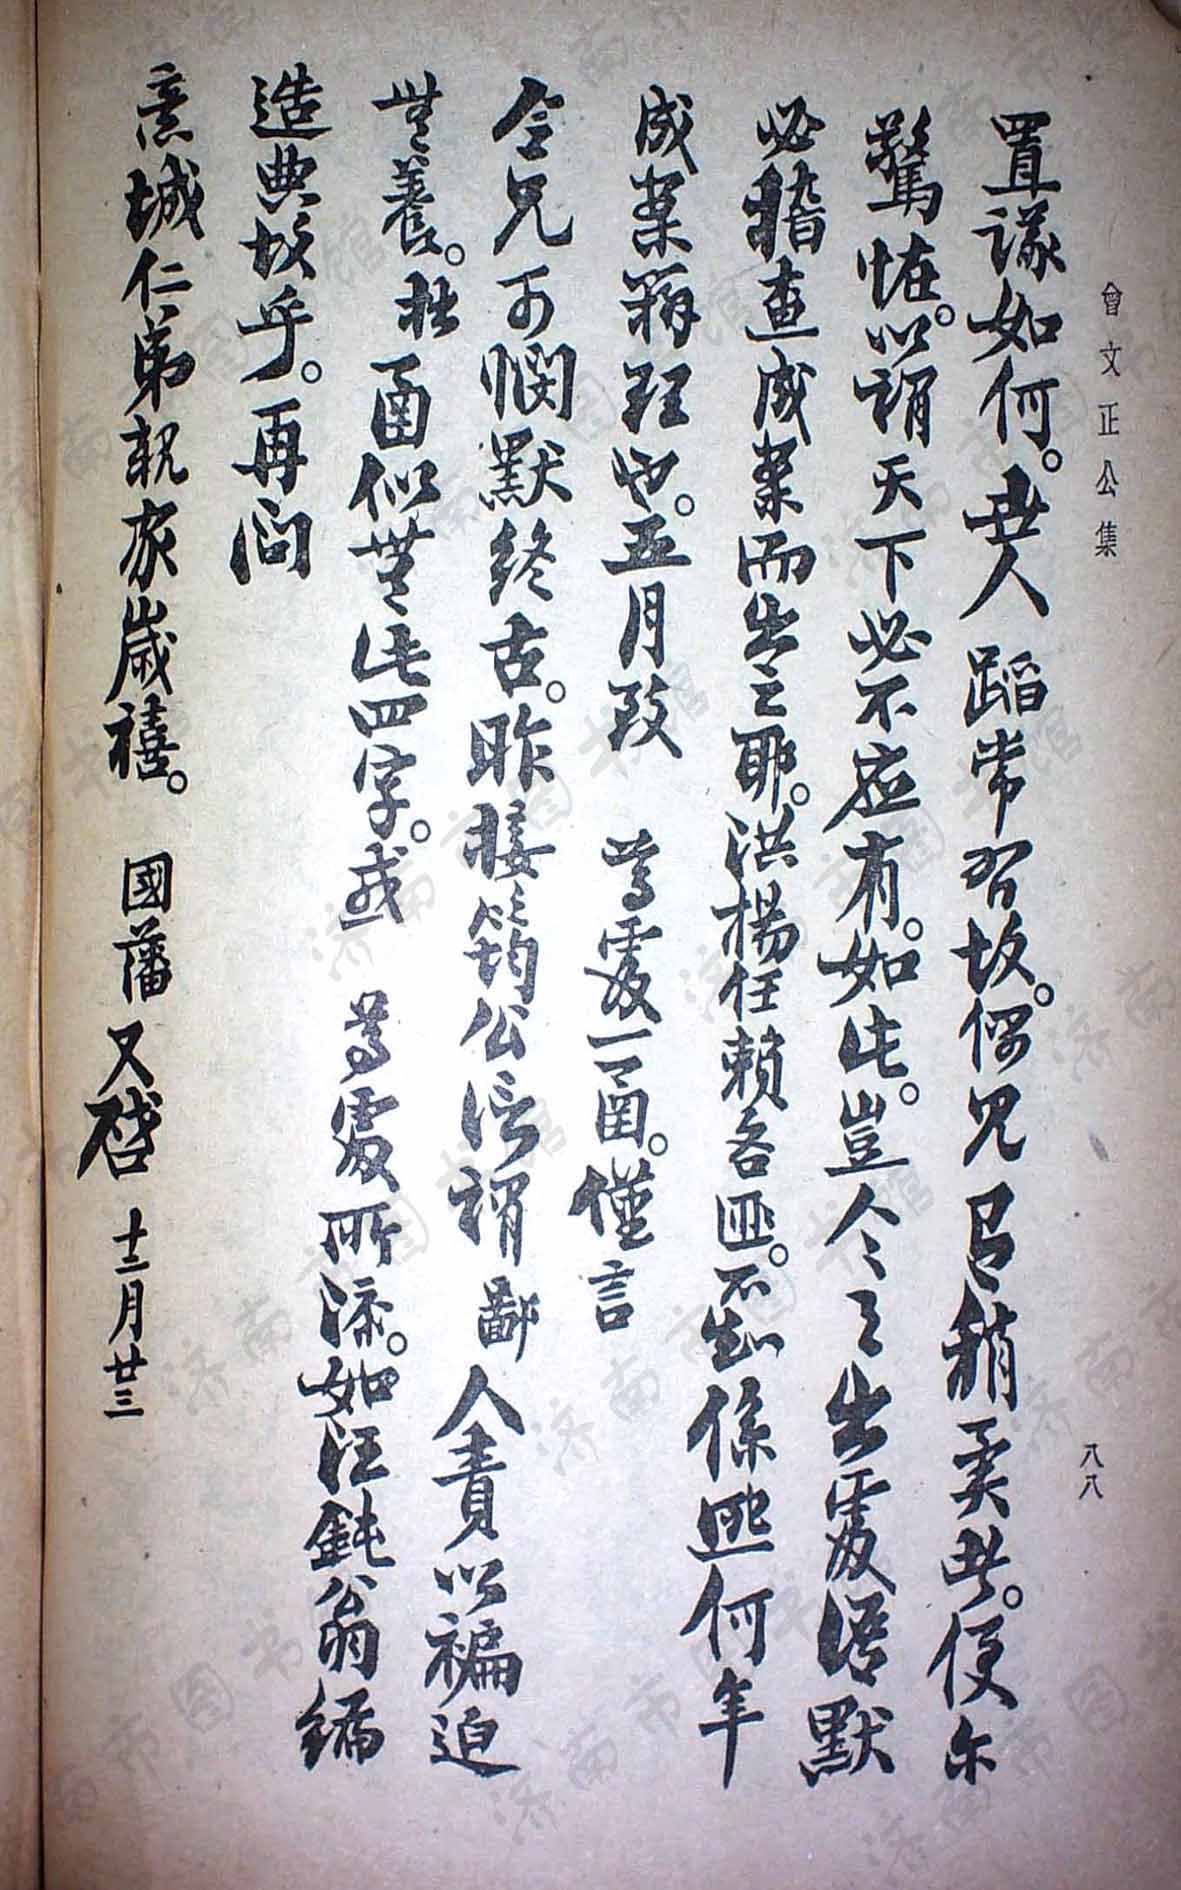 曾文正公集
八八
置議如何。世人蹈常習故。偶見局稍柔些。便爾
驚怪。以謂天下必不應有。如此。豈今之出處語默
必稽查成案而出之耶。洪楊任賴各匪。不知係照何年
成案辦理也。五月致 尊處一函。僅言
令兄可憫默終古。昨接筠公信謂鄙人責以褊迫
無養。杜函似無此四字。或 尊處所添。如汪鈍翁編
造典故乎。再問
意城仁弟親家歲禧。 國藩又啓 十二月廿三